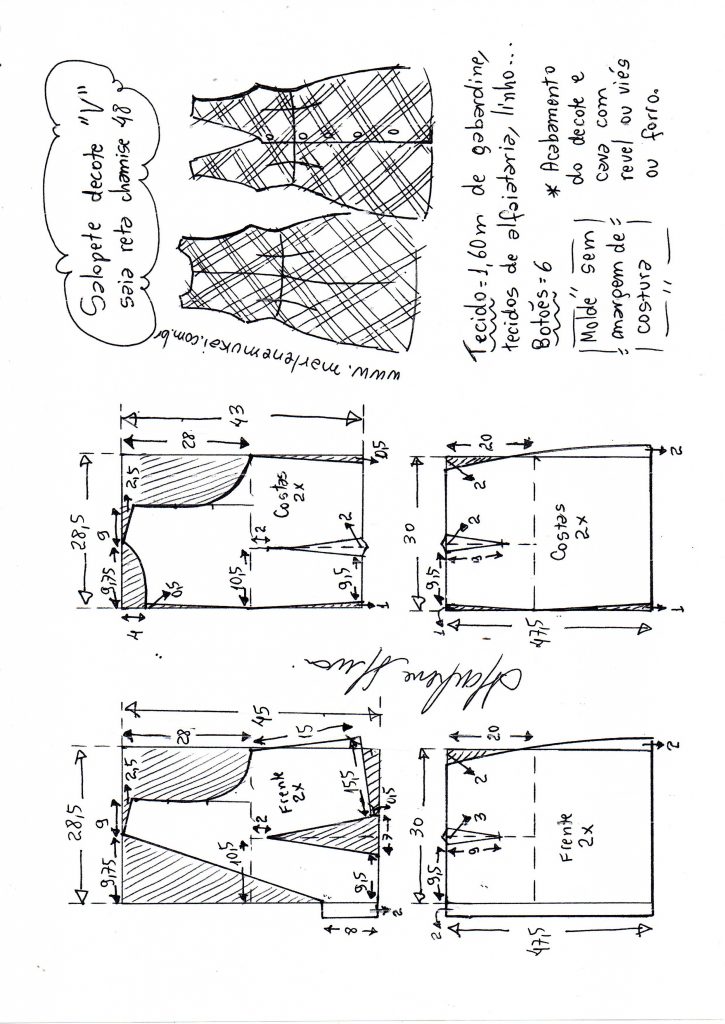 Salopete decote "V"
saia reta chamise 48
www.marlenemukai.com.br
Tecido = 1,60m de gabardine,
tecidos de alfaiataria, linho...
Botões = 6
Molde sem
margem de
costura
* Acabamento
do decote e
cava com
revel ou viés
ou forro.
28,5
9,75
9
2,5
4
0,5
28
43
Costas
2x
10,5
2
9,5
2
1
0,5
30
1
9,5
2
9
2
20
Costas
2x
47,5
1
2
28,5
9,75
9
2,5
28
45
Frente
2x
10,5
2
15
15,5
8
9,5
7
0,5
2
30
2
9,5
3
9
2
20
Frente
2x
47,5
2